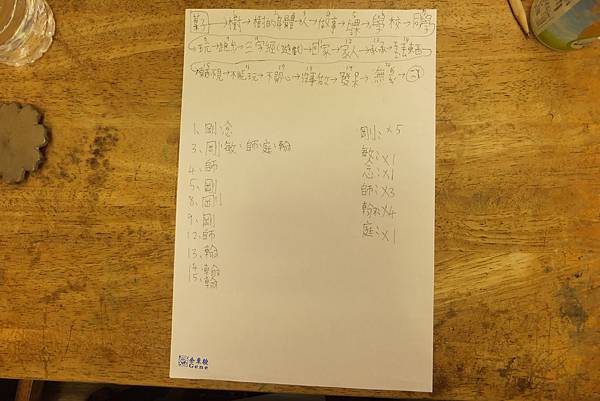 葉子→樹→樹的身體→人→做事→上課→學校→同學
→玩→跑步→三字經(遊戲)→回家→家人→
→不能玩→不開心→沒事做→發呆→無意→
1、剛、念
3、剛、敏、師、庭、翰
4、師
5、剛
8、剛
9、剛
12、師
13、翰
14、翰
15、翰
剛:×5
敏:×1
念:×1
師:×3
翰:×4
庭:×1
Gene